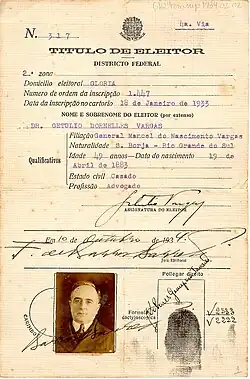 4a. Via
N. 317
TITULO DE ELEITOR
DISTRICTO FEDERAL
2.a zona
Domicilio eleitoral GLORIA
Numero de ordem da inscripção 1.447
Data da inscripção no cartorio 18 de Janeiro de 1933
NOME E SOBRENOME DO ELEITOR (por extenso)
DR. GETULIO DORNELLES VARGAS
Qualificativos
Filiação General Manoel do Nascimento Vargas
Naturalidade S. Borja - Rio Grande do Sul
Idade 49 annos - Data do nascimento 19 de Abril de 1883
Estado civil Casado
Profissão Advogado
Getulio Vargas
ASSIGNATURA DO ELEITOR
Em 10 de Outubro de 1934.
JUIZ ELEITORAL
Pollegar direito
CARIMBO
Formula dactyloscopica
V 2333
V 2222